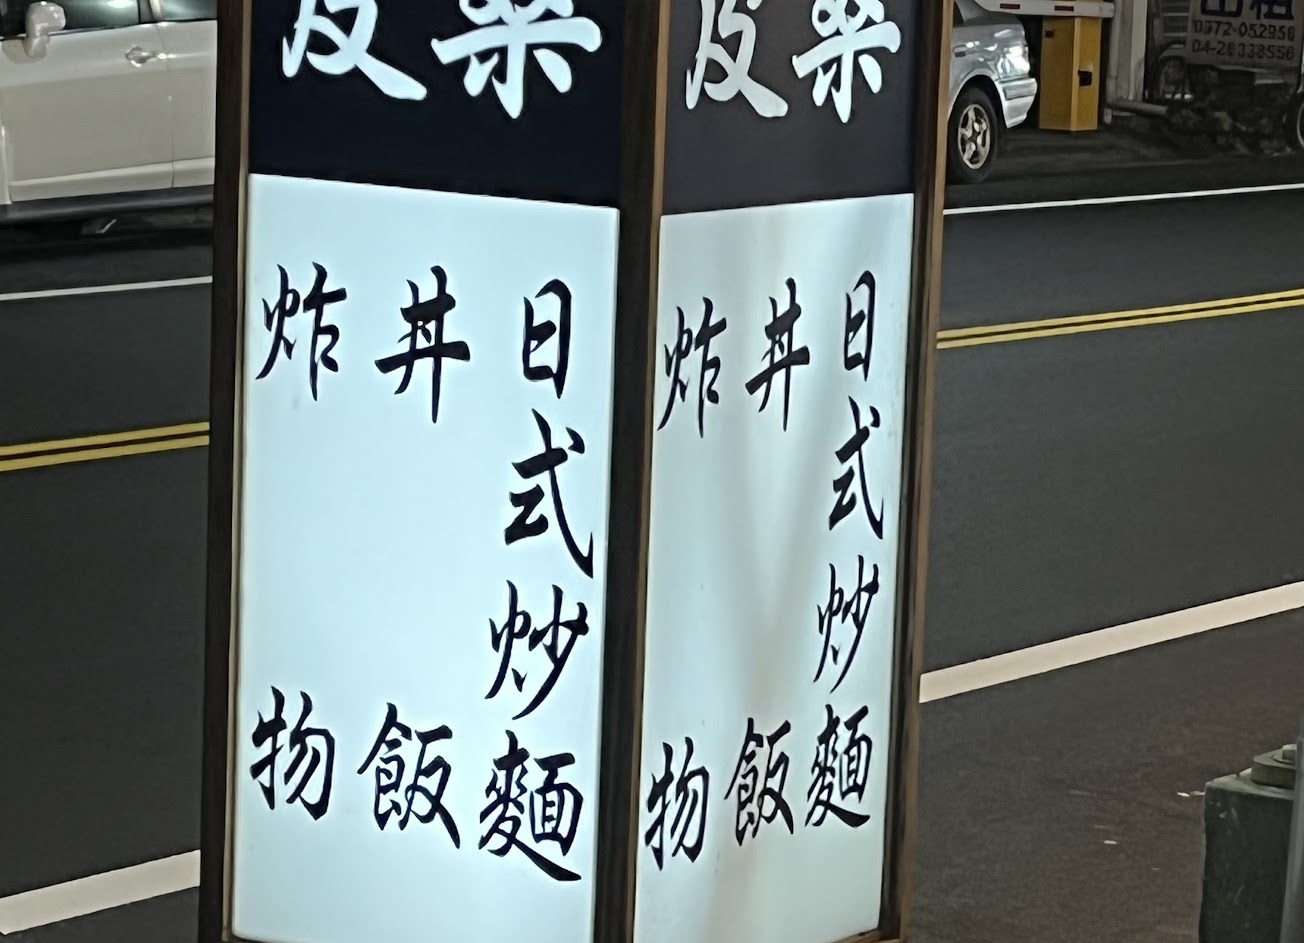 日式炒麵
丼飯
炸物
日式炒麵
丼飯
炸物
0972-052956
04-26338556